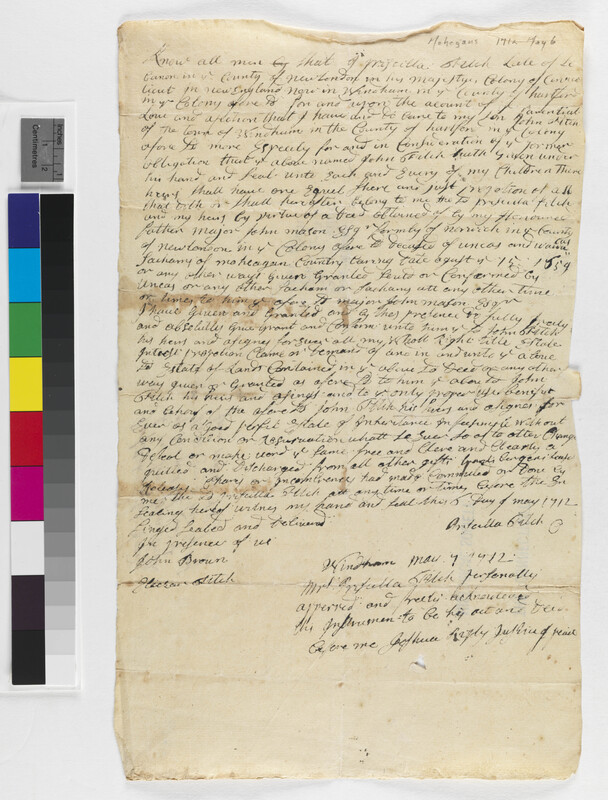 Mohegans 1712 May 6
Know all men by that I Priscilla Fitch Late of Le
banon in ye County of New London in his Majestys Colony of Connec
ticut in New England Now in Windham in ye County of hartford
in ye Colony afore sd for and upon the acount of ye Parential
Love and afection that I have and do bare to my son John Fitch
of the town of Windham in the County of hartford in ye Colony
afore sd more Especly for and in Consideration of ye former
obligation that ye above named John Fitch hath given under
his hand and Seal unto Each and Every of my Children There
heirs shall have one Equel share and just proportion of all
that doth or shall hereafter belong to me the sd priscila Fitch
and my heirs by vertue of a Deed obtained by my Honoured
father Major John mason Esqr formerly of Norwich in ye County
of newlondon in ye Colony afore sd Deceased of uncas and
Sachems of moheagan Country baring Date agust ye 15: 1659
or any other ways given Granted Deeded or Confermed by
uncas or any other Sachem or Sachems att any other time
or times to him ye afore sd major John mason Esqr
I have Given and Granted and by thes presence Do fully freely
and absolutly Give grant and Conferm unto him ye sd John Fitch
his heirs and asignes for Ever all my Whole Right title Estate
Intrest proportion Clame or Demand of and in and unto ye above
sd Estate of Lands Contained in ye above sd Deed or any other
ways given or Granted as afore sd to him ye above sd John
Fitch his heirs and asignes and to ye only proper use benefit
and behoof of the afore sd John Fitch his heirs and asignes for
Ever as a good perfit Estate of Inheritance In feesimple without
any Condition or Reservation whatt so Ever so as to alter Change
Defeat or make Void ye same free and Clere and Clearly a
quitted and Discharged from all other gifts Grants Bargens Leases
or Incombrences had made Committed or Done by
me the sd priscilla Fitch att any time or times before the En
sealing hereof witnes my hand and seal this 6 Day of may 1712
Singed Sealed and Delivered
Priscilla Fitch
In presence of us
John Brown
Eleazar Fitch
Windham May 7 1712:
Mrs Priscilla Fitch personally
appeared and freely acknowledged
this Instrument to be her act and Deed
Before me Joshua Ripley Justice of peace
inches
Centimetres